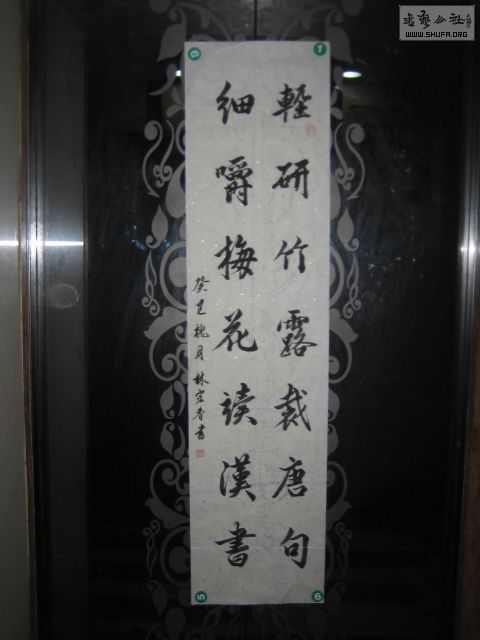 輕研竹露裁唐句
細嚼梅花讀漢書
癸巳槐月林宏香書
書藝公社
WWW.SHUFA.ORG